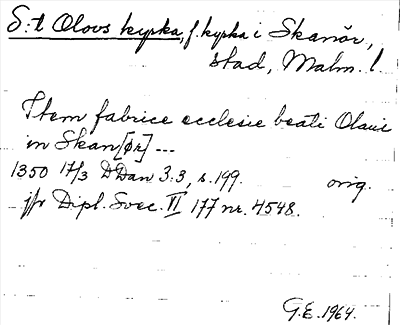 S:t Olovs kyrka, f. kyrka i Skanör,
stad, Malm. l.
Item fabrice ecclesie beati Olaui
in Skan[ør] ---
1350 17/3 DDan 3:3, s. 199. orig.
jfr Dipl. Svec. VI 177 nr. 4548.
G.E. 1964.